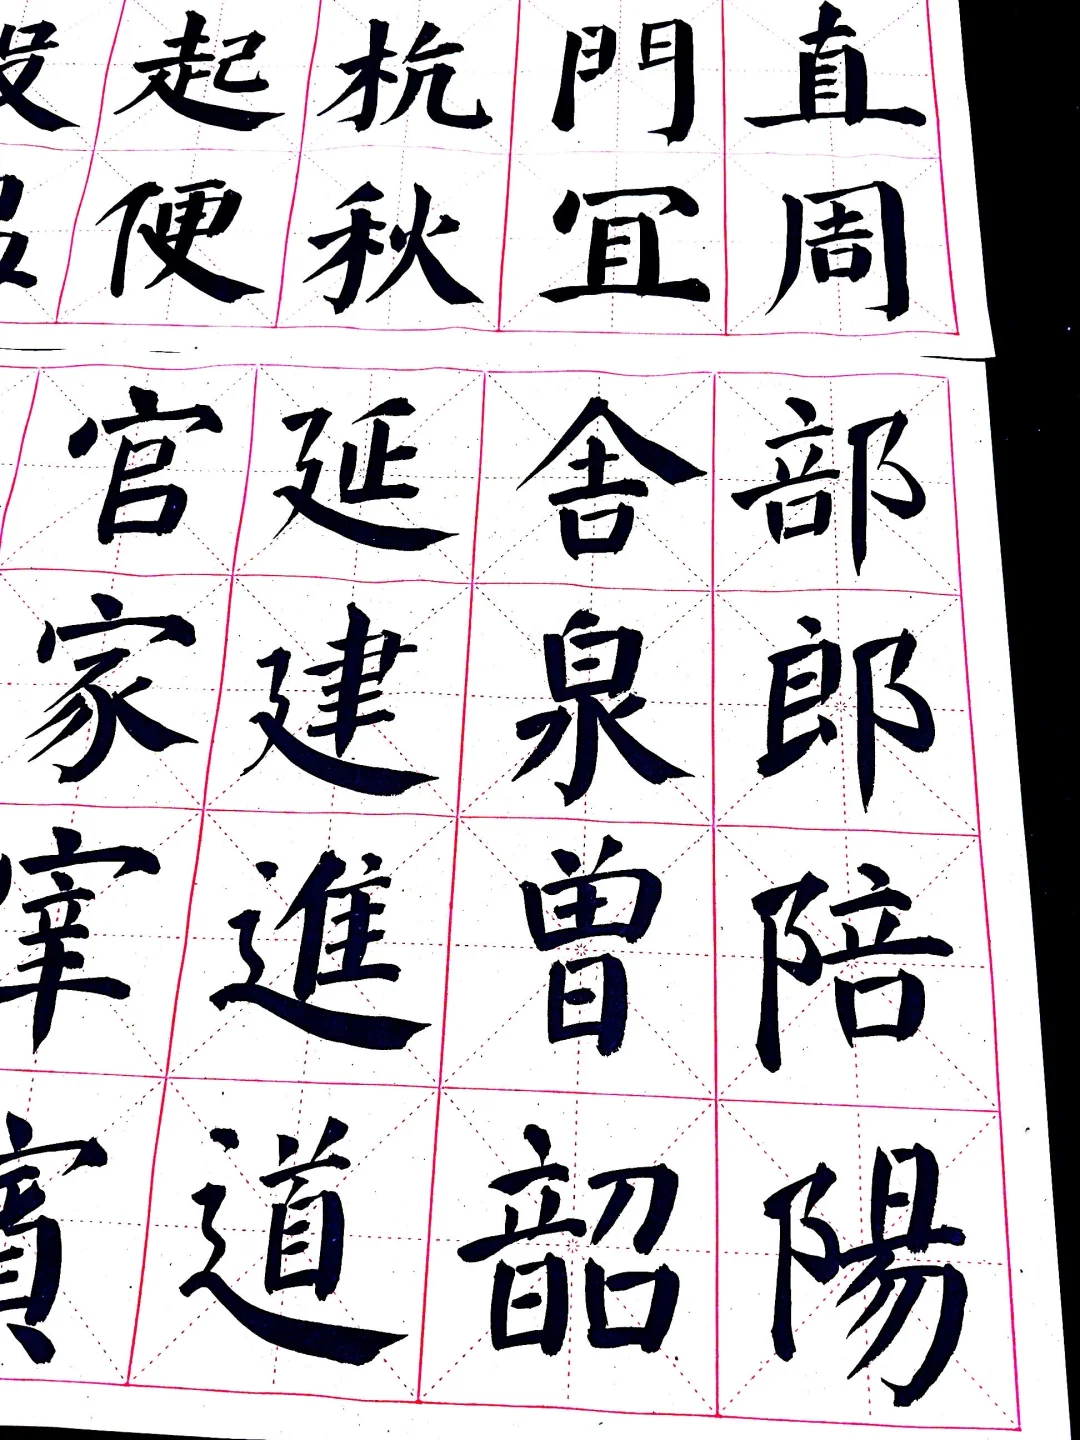 直周
門冝
杭秋
起便
部郎陪陽
舍泉曾韶
延建進道
官家宰